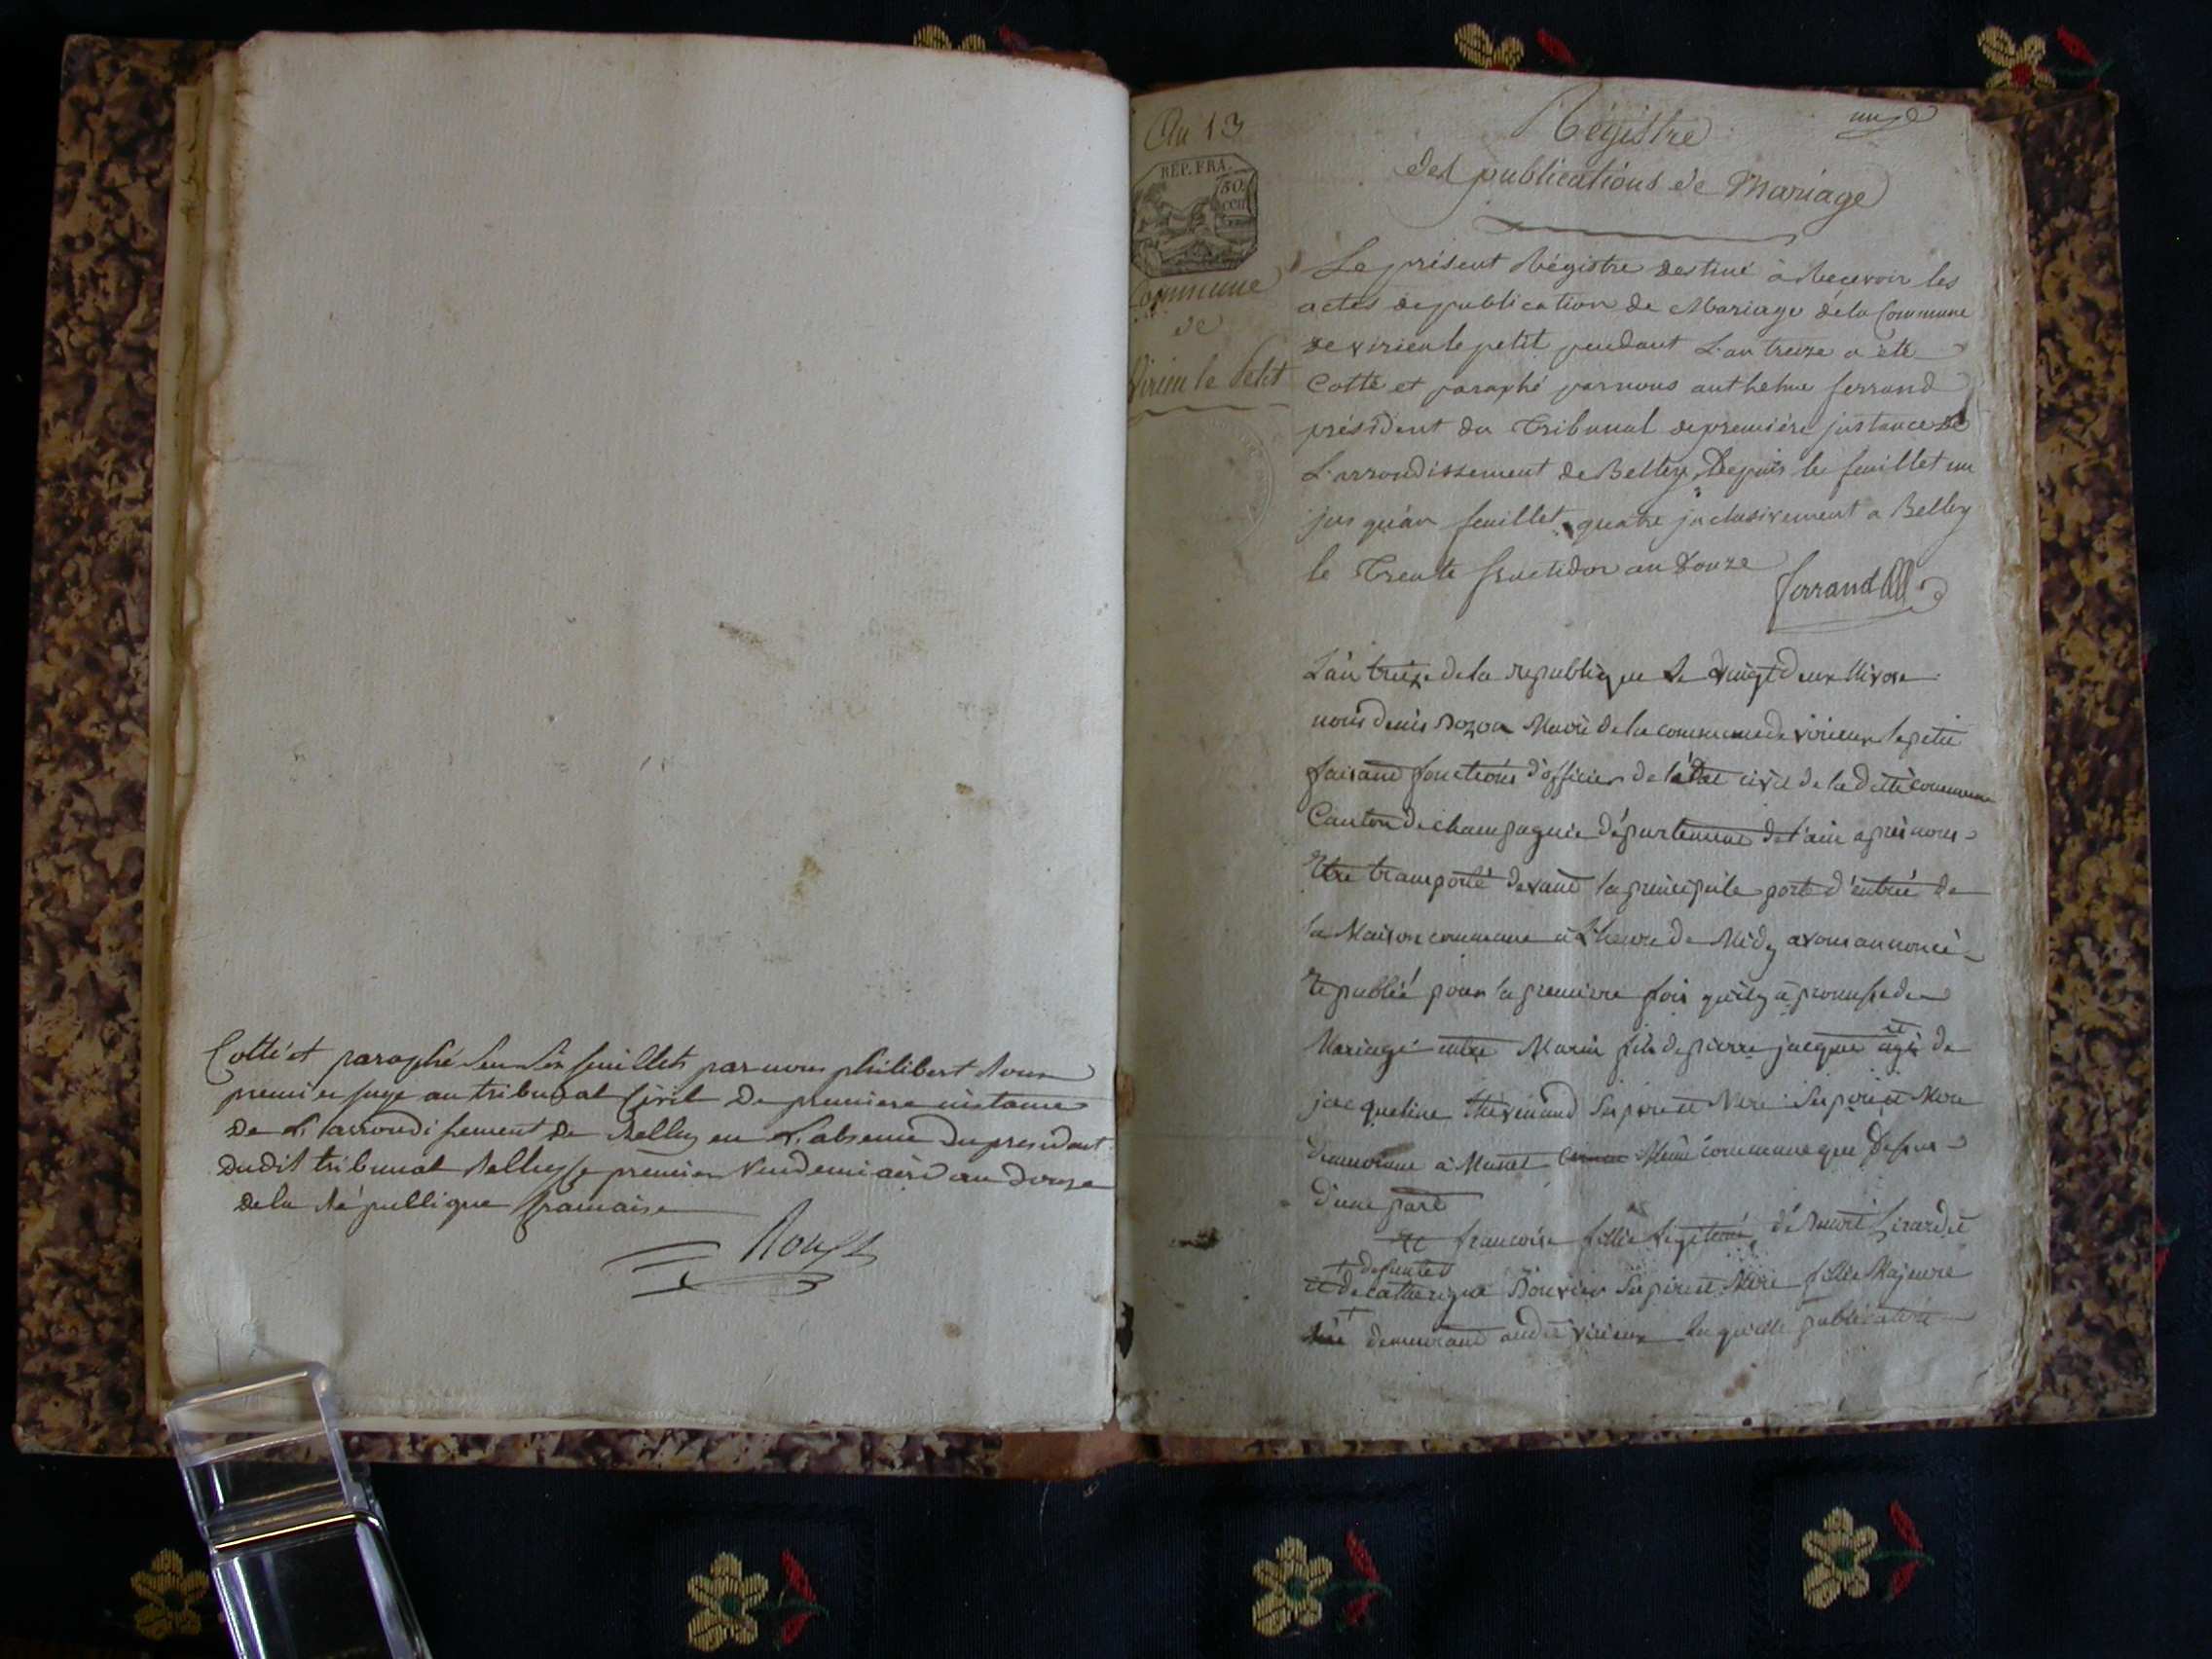 Cotté et paraphé sur six feuillets par nous philibert Roux
premier juge au tribunal Civil de premiere instance
de L'arrondissement de Belley en L'absence du president
dudit tribunal Belley le premier Vendemiaire an douze
de la République francaise
Roux
An 13
RÉP. FRA.
50 cen
Commune
de
Virieu le Petit
un
Régistre
des publications de Mariage
Le présent Régistre destiné à Recevoir les
actes de publication de Mariage de la Commune
de virieu le petit pendant L'an treize a été
Cotté et paraphé par nous anthelme ferrand
président du Tribunal de première instance de
L'arrondissement de Belley, Depuis le feuillet un
jusqu'au feuillet quatre inclusivement a Belley
le Trente fructidor an Douze
ferrand
L'an treize de la republique Le vingt deux Nivose
nous Denis Bozon Maire de la commune de virieux le petit
faisant fonctions d'officier de l'état civil de la ditte commune
Canton de champagnie département de l'ain apres nous
Etre transporté devant la principale porte d'entrée de
la Maison commune a L'heure de Midy avons annoncé
Et publié pour la premiere fois qu'il y a promesse de
Mariage entre Marin fils de pierre jacque et de
jacqueline thevenand Ses pere et Mere Ses pere et Mere
demeurant à Munet Même commune que Dessus
d'une part
Et francoise fillie legitime de Benoit Girardet
+ defuncte
et de catherigne Bouvier Ses pere et Mere fillie Majeure
demeurant audit virieux laquelle publication